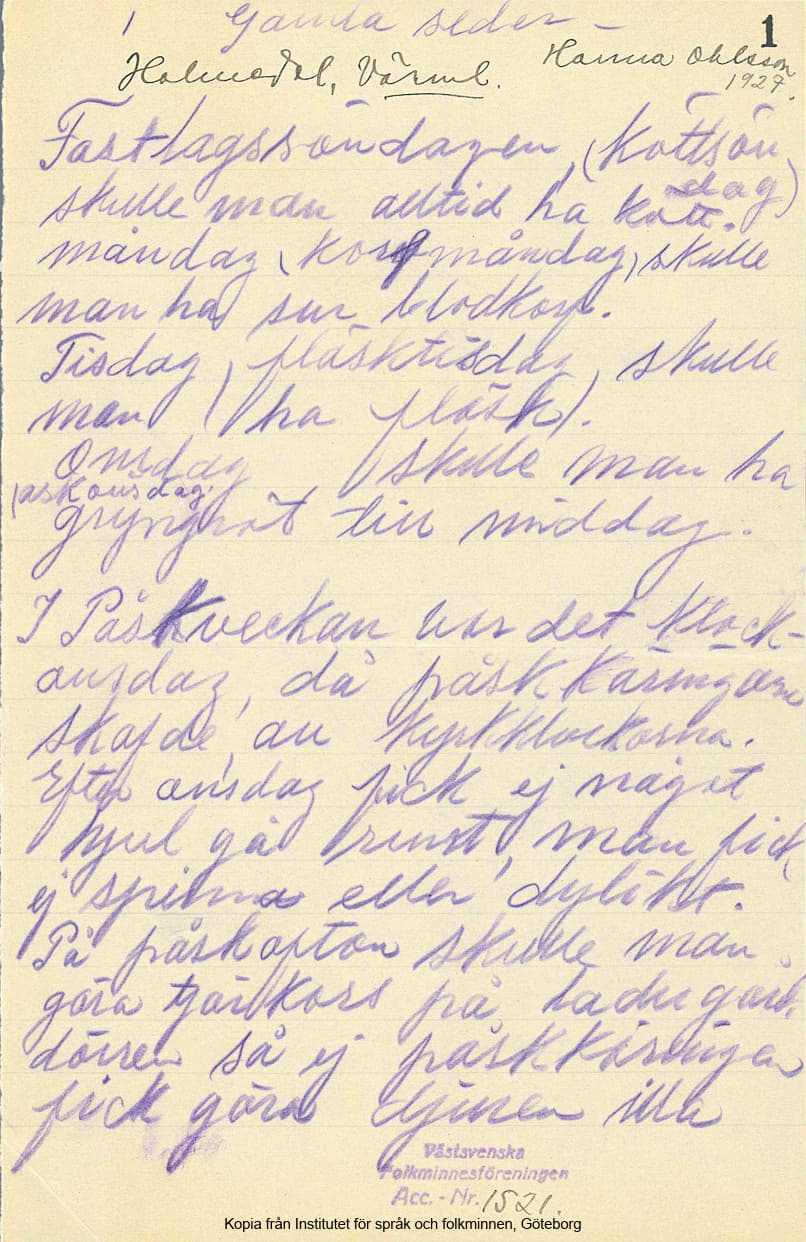 1 Gamla seder – 1
Holmedal, Värml. Hanna Ohlsson
1927.
Fastlagssöndagen, (köttsön
dag)
skulle man alltid ha kött.
måndag, korfmåndag, skulle
man ha sur blodkorf.
Tisdag, fläsktisdag, skulle
man (ha fläsk).
Onsdag, skulle man ha
(askonsdag.
gryngröt till middag.
I Påskveckan var det klock-
onsdag, då påskkäringarna
skafde, au kyrkklockorna.
Efter onsdag fick ej något
hjul gå runt, man fick
ej spinna eller dylikt.
På påskafton skulle man
göra tjärkors på ladugårds
dörren så ej påskkäringen
fick göra djuren illa
Västsvenska
Folkminnesföreningen
Acc. - Nr. 1521.
Kopia från Institutet för språk och folkminnen, Göteborg